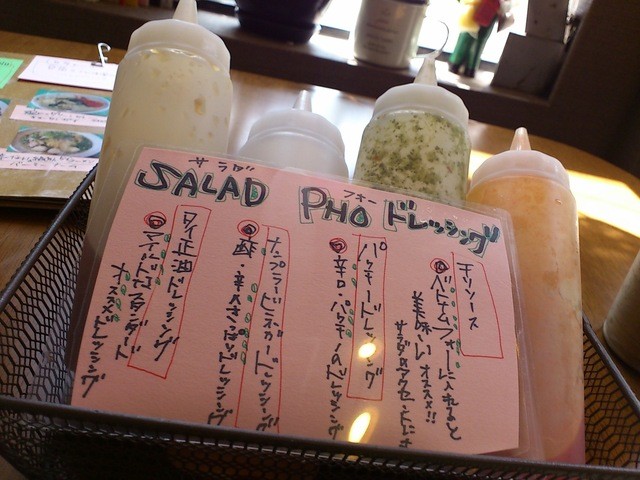 サラダ フォー
SALAD PHO ドレッシング
チリソース
ベトナムフォーに入れると
美味しい オススメ!!
サラダのアクセントにも
パクチードレッシング
辛口・パクチーのドレッシング
ナンプラービネガードレッシング
酸・辛 さっぱりドレッシング
タイ正油ドレッシング
マイルドなスタンダード
オススメドレッシング